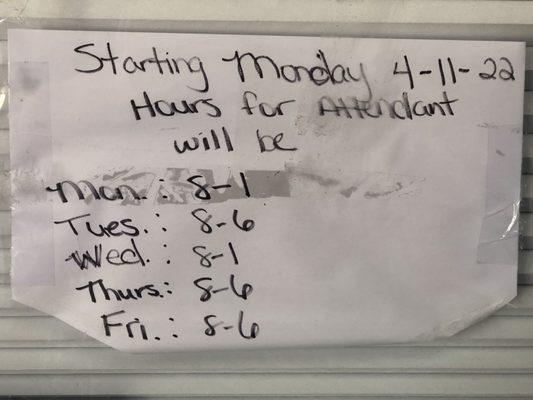 Starting Monday 4-11-22
Hours for Attendant
will be
Mon.: 8-1
Tues.: 8-6
Wed.: 8-1
Thurs.: 8-6
Fri.: 8-6